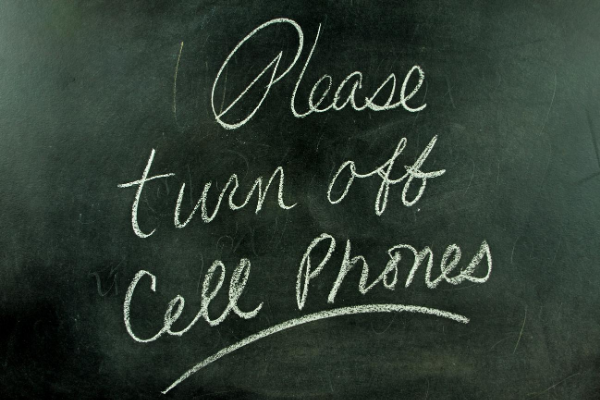 Please
turn off
Cell Phones